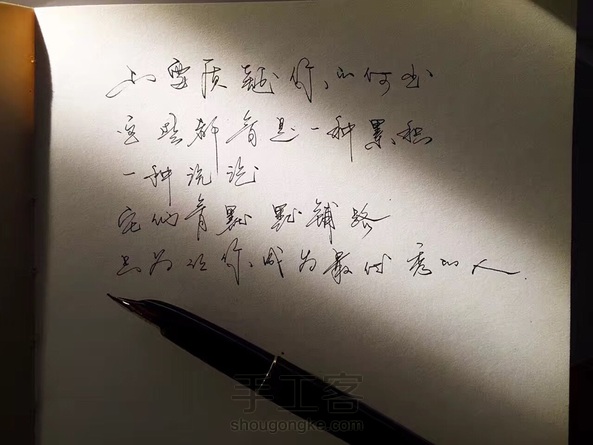 不要质疑你的付出
这些都会是一种累积
一种沉淀
它们会默默铺路
只为让你成为最优秀的人.
手工客
shougongke.com